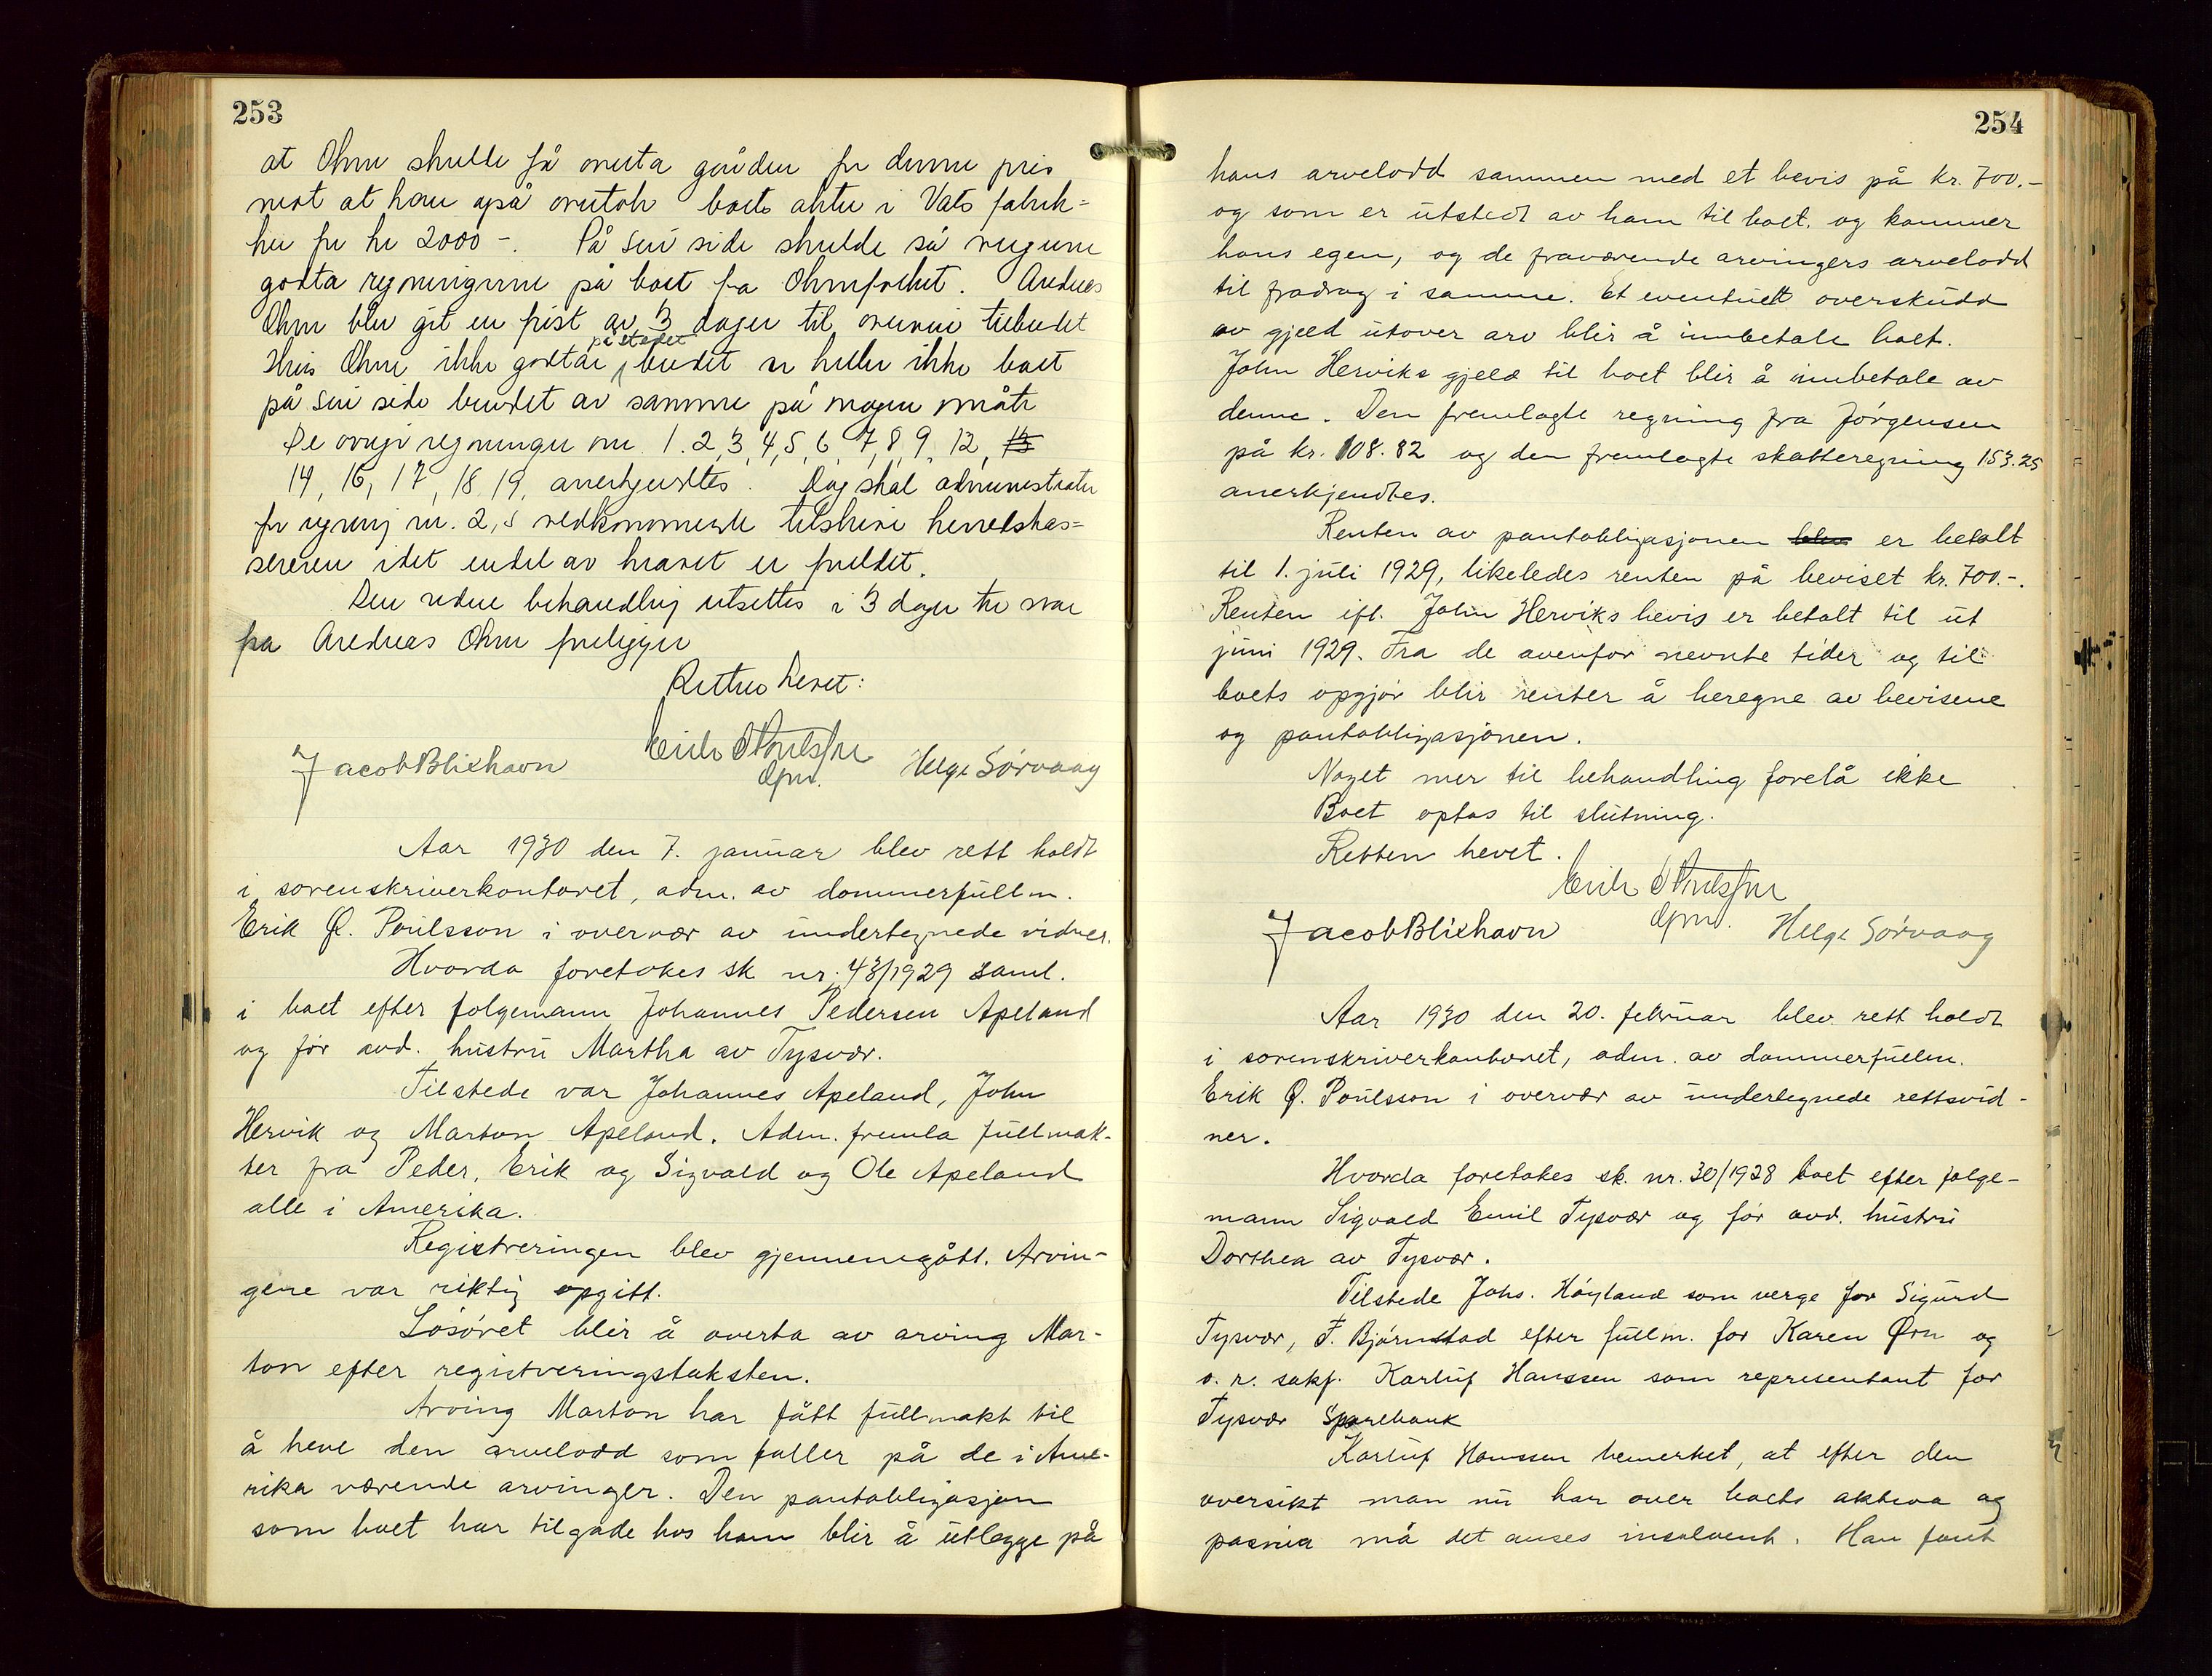 253
at Ohm skulde få overta gården for denne pris
mot at han også overtok boets aktie i Vats fabrik-
ker for kr 2000 -. På sin side skulde så
godta regningene på boet fra Ohmfolket. Andreas
Ohm blev git en frist av 3 dager til tilbudet
Hvis Ohm ikke godtar på stedet budet er heller ikke boet
på sin side bundet av samme på nogen måte
De øvrige regninger nr. 1. 2, 3, 4, 5, 6, 7, 8, 9, 12, 13
14, 16, 17, 18, 19, anerkjendtes. Dog skal administrator
for regning nr. 2, 5 vedkommende tilskrive herredskas-
sereren idet endel av kravet er foreldet.
Den videre behandling utsettes i 3 dager til svar
fra Andreas Ohm foreligger
Retten hevet:
Erik Ø Poulsson
dfm.
Jacob Blikhavn Helge Sörvaag
Aar 1930 den 7. januar blev rett holdt
i sorenskriverkontoret, adm. av dommerfullm.
Erik Ø. Poulsson i overvær av undertegnede vidner.
Hvorda foretokes sk nr. 43/1929 saml.
i boet efter folgemann Johannes Pedersen Apeland
og før avd. hustru Martha av Tysvær.
Tilstede var Johannes Apeland, John
Hervik og Marton Apeland. Adm. fremla fullmak-
ter fra Peder, Erik og Sigvald og Ole Apeland
alle i Amerika.
Registreringen blev gjennemgått. Arvin-
gene var riktig opgitt.
Løsøret blir å overta av arving Mar-
ton efter registreringstaksten.
Arving Marton har fått fullmakt til
å heve den arvelodd som faller på de i Ame-
rika værende arvinger. Den pantobligasjon
som boet har tilgode hos ham blir å utlegge på
254
hans arvelodd sammen med et bevis på kr. 700.-
og som er utstedt av ham til boet. og kommer
hans egen, og de fraværende arvingers arvelodd
til fradrag i samme. Et eventuelt overskudd
av gjeld utover arv blir å innbetale boet.
John Herviks gjeld til boet blir å innbetale av
denne. Den fremlagte regning fra Jørgensen
på kr. 108.82 og den fremlagte skatteregning 153.25
anerkjendtes.
Renten av pantobligasjonen blev er betalt
til 1. juli 1929, likeledes renten på beviset kr. 700.-.
Renten ifl. John Herviks bevis er betalt til ut
juni 1929. Fra de ovenfor nevnte tider og til
boets opgjør blir renter å beregne av bevisene
og pantobligasjonen.
Noget mer til behandling forelå ikke
Boet optas til slutning.
Retten hevet.
Erik Ø Poulsson
dfm.
Jacob Blikhavn Helge Sörvaag
Aar 1930 den 20. februar blev rett holdt
i sorenskriverkontoret, adm. av dommerfullm.
Erik Ø. Poulsson i overvær av undertegnede rettsvid-
ner.
Hvorda foretokes sk. nr. 30/1928 boet efter folge-
mann Sigvald Emil Tysvær og før avd. hustru
Dorthea av Tysvær.
Tilstede Johs. Høyland som verge for Sigurd
Tysvær, F. Bjørnstad efter fullm. for Karen Ørn og
o. r. sakf. Karluf Hanssen som representant for
Tysvær Sparebank
Karluf Hanssen bemerket, at efter den
oversikt man nu har over boets aktiva og
passiva må det anses insolvent. Han fant